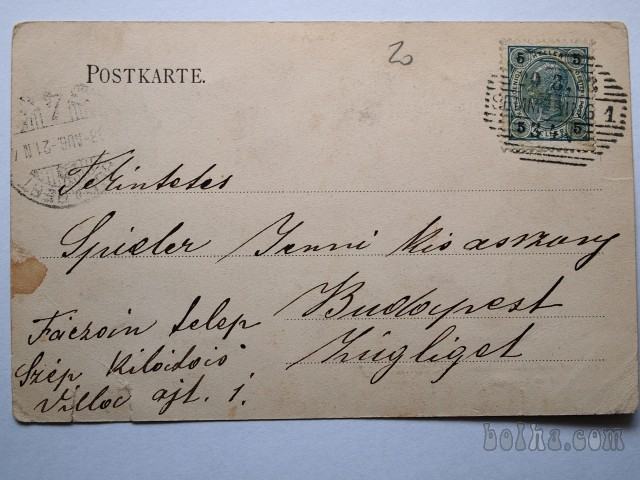 POSTKARTE.
20
5 HELLER 5
5 5
1.
903 AUG. 21 N 7
Tekintetes
Spieler Jenni kisasszony
Budapest
Zugliget
Fáczoin telep
Szép Kilátás
Villa ajt. 1.
bolha.com